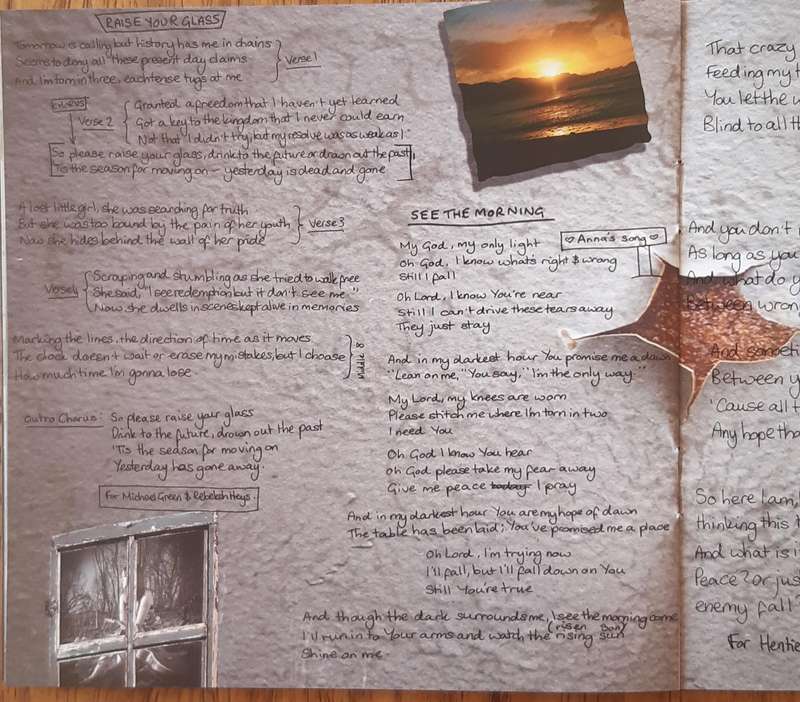 RAISE YOUR GLASS
Tomorrow is calling but history has me in chains
Seems to deny all these present day claims
And I'm torn in three, each tense tugs at me
Verse 1
CHORUS
Verse 2
Granted a freedom that I haven't yet learned
Got a key to the kingdom that I never could earn
Not that I didn't try, but my resolve was as weak as I
So please raise your glass, drink to the future or drown out the past,
To the season for moving on - yesterday is dead and gone
A lost little girl, she was searching for truth
But she was too bound by the pain of her youth
Now she hides behind the wall of her pride
Verse 3
Verse 4
Scraping and stumbling as she tried to walk free
She said, "I see redemption but it don't see me"
Now she dwells in scenes kept alive in memories
Marking the lines, the direction of time as it moves
The clock doesn't wait or erase my mistakes, but I choose
How much time I'm gonna lose
Middle 8
Outro Chorus: So please raise your glass
Drink to the future, drown out the past
'Tis the season for moving on
Yesterday has gone away.
For Michael Green & Rebekah Heys.
SEE THE MORNING
♡ Anna's Song ♡
My God, my only light
Oh God, I know what's right & wrong
Still I fall
Oh Lord, I know You're near
Still I can't drive these tears away
They just stay
And in my darkest hour You promise me a dawn
"Lean on me," You say, "I'm the only way."
My Lord, my knees are worn
Please stitch me where I'm torn in two
I need You
Oh God I know You hear
Oh God please take my fear away
Give me peace today I pray
And in my darkest hour You are my hope of dawn
The table has been laid; You've promised me a place
Oh Lord, I'm trying now
I'll fall, but I'll fall down on You
Still You're true
And though the dark surrounds me, I see the morning come
(risen Son)
I'll run in to Your arms and watch the rising sun
Shine on me.
That crazy
Feeding my
You let the
Blind to all
And you don't
As long as you
And what do
Between wron
And someti
Between
'Cause all
Any hope tha
So here I am,
thinking this
And what is
Peace? or jus
enemy fall?
For Hen